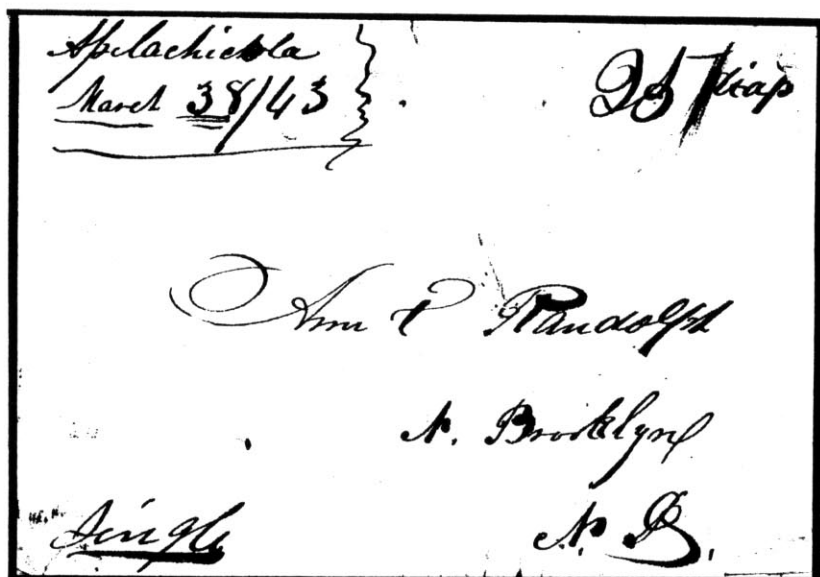 Apelachickola
March 38/43
25
Ann P Randolph
N. Brooklyn
Single